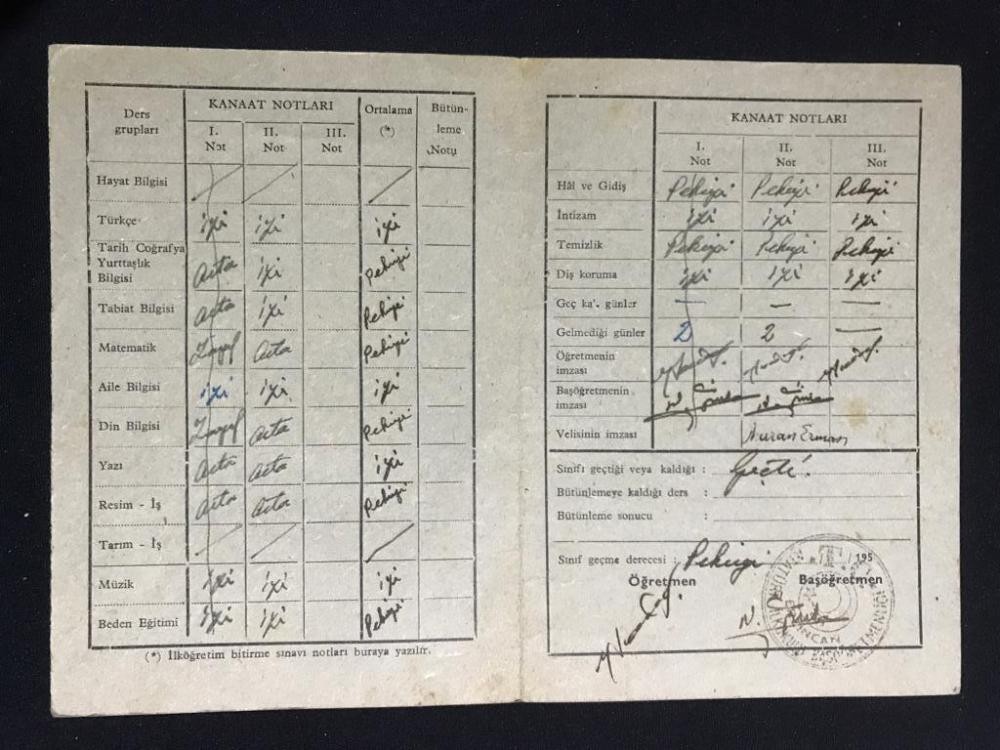 Ders grupları KANAAT NOTLARI Ortalama (*) Bütün- leme Notu
I. Not II. Not III. Not
Hayat Bilgisi
Türkçe iyi iyi iyi
Tarih Coğrafya Yurttaşlık Bilgisi Orta iyi Pekiyi
Tabiat Bilgisi Orta iyi Pekiyi
Matematik Zayıf Orta Pekiyi
Aile Bilgisi iyi iyi iyi
Din Bilgisi Zayıf Orta Pekiyi
Yazı Orta Orta iyi
Resim - İş Orta Orta Pekiyi
Tarım - İş
Müzik iyi iyi iyi
Beden Eğitimi iyi iyi Pekiyi
(*) İlköğretim bitirme sınavı notları buraya yazılır.
KANAAT NOTLARI
I. Not II. Not III. Not
Hâl ve Gidiş Pekiyi Pekiyi Pekiyi
İntizam iyi iyi iyi
Temizlik Pekiyi Pekiyi Pekiyi
Diş koruma iyi iyi iyi
Geç ka. günler — —
Gelmediği günler 2 2 —
Öğretmenin imzası
Başöğretmenin imzası
Velisinin imzası Nuran Erman
Sınıfı geçtiği veya kaldığı : Geçti.
Bütünlemeye kaldığı ders :
Bütünleme sonucu :
Sınıf geçme derecesi : Pekiyi 195
Öğretmen Başöğretmen